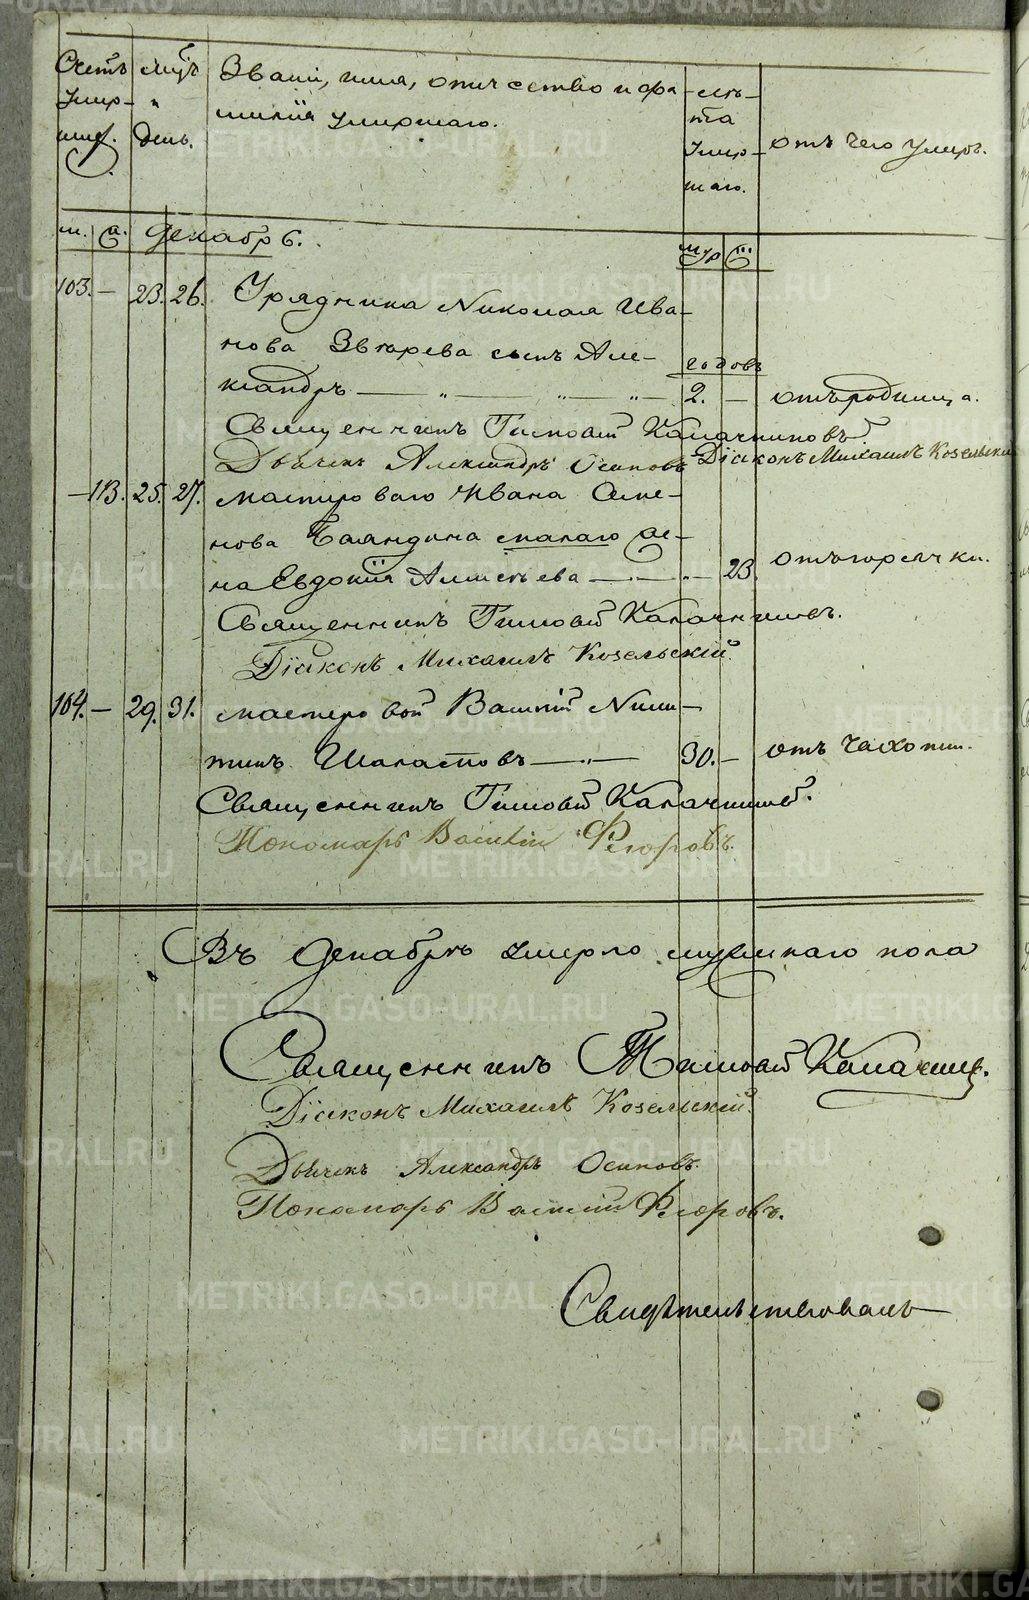 Счетъ умер-шиҳ.
мцъ и день.
Званіе, имя, отчество и фа-
миліи умершаго.
лѣ-
та
умер-
шаго.
отъ чего умеръ.
м.
ж.
Декабрь.
му
же
103. — 23. 26. Урядника Николая Ива-
нова Звѣрева сынъ Але-
годовъ
ксандръ — „ — „ — „ — 2. — отъ родимца.
Священникъ Тимофей Калачниковъ.
Дьячекъ Александръ Осиповъ Діаконъ Михаилъ Козельскій
— 113. 25. 27. мастероваго Ивана Семе-
нова Баландина малаго же-
на Евдокія Алексѣева — „ — 23. отъ горячки.
Священникъ Тимофей Калачниковъ.
Діаконъ Михаилъ Козельскій.
104. — 29. 31. мастеровой Василій Ники-
тинъ — „ — 30. — отъ чахотки.
Священникъ Тимофей Калачниковъ.
Пономарь Василій Флоровъ.
Въ Декабрѣ умерло мужескаго пола
Священникъ Тимофей Калачниковъ.
Діаконъ Михаилъ Козельскій.
Дьячекъ Александръ Осиповъ.
Пономарь Василій Флоровъ.
Свидѣтельствовалъ
METRIKI.GASO-URAL.RU